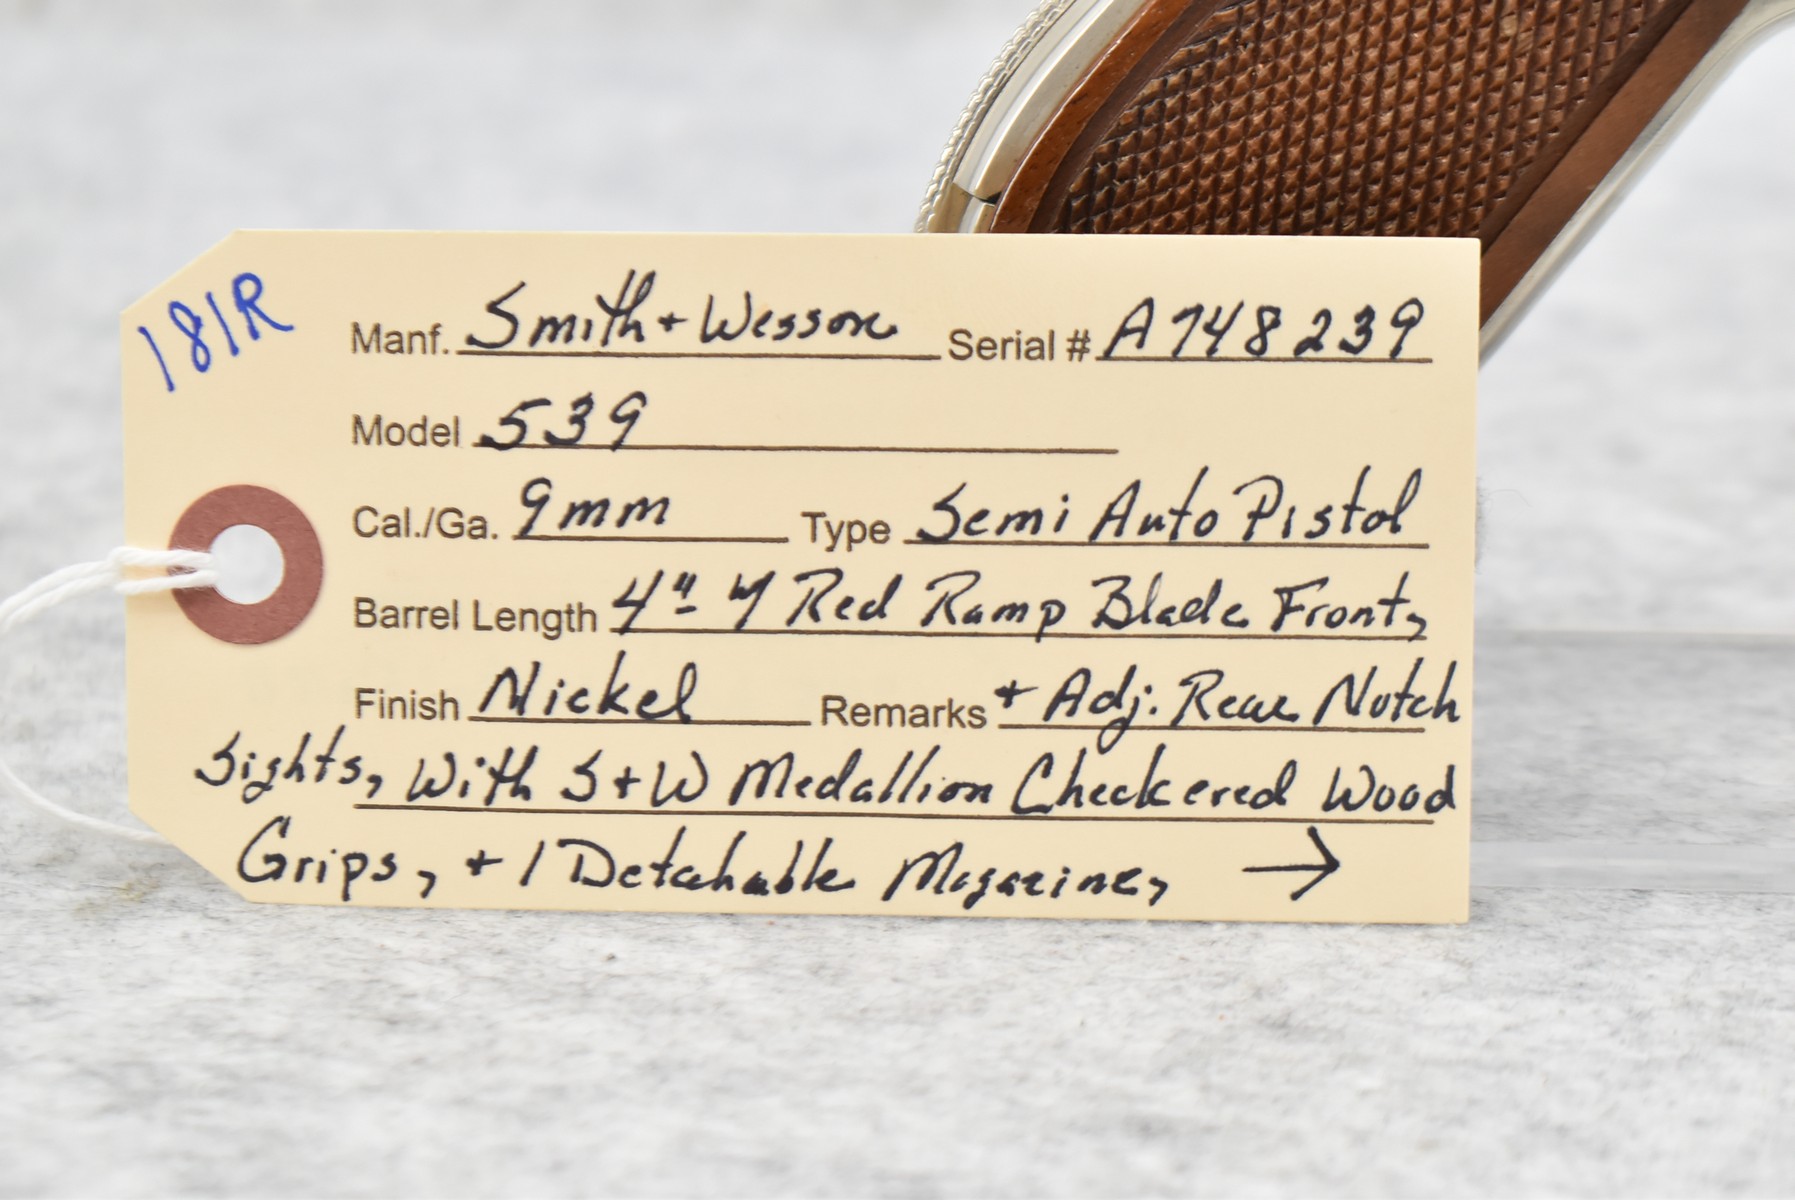 181R
Manf. Smith + Wesson Serial # A748239
Model 539
Cal./Ga. 9mm Type Semi Auto Pistol
Barrel Length 4" w/ Red Ramp Blade Front,
Finish Nickel Remarks + Adj. Rear Notch
Sights, With S+W Medallion Checkered Wood
Grips, + 1 Detachable Magazine, →